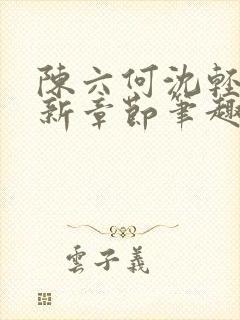 陳六何沈輕
新章節筆趣
雲子義